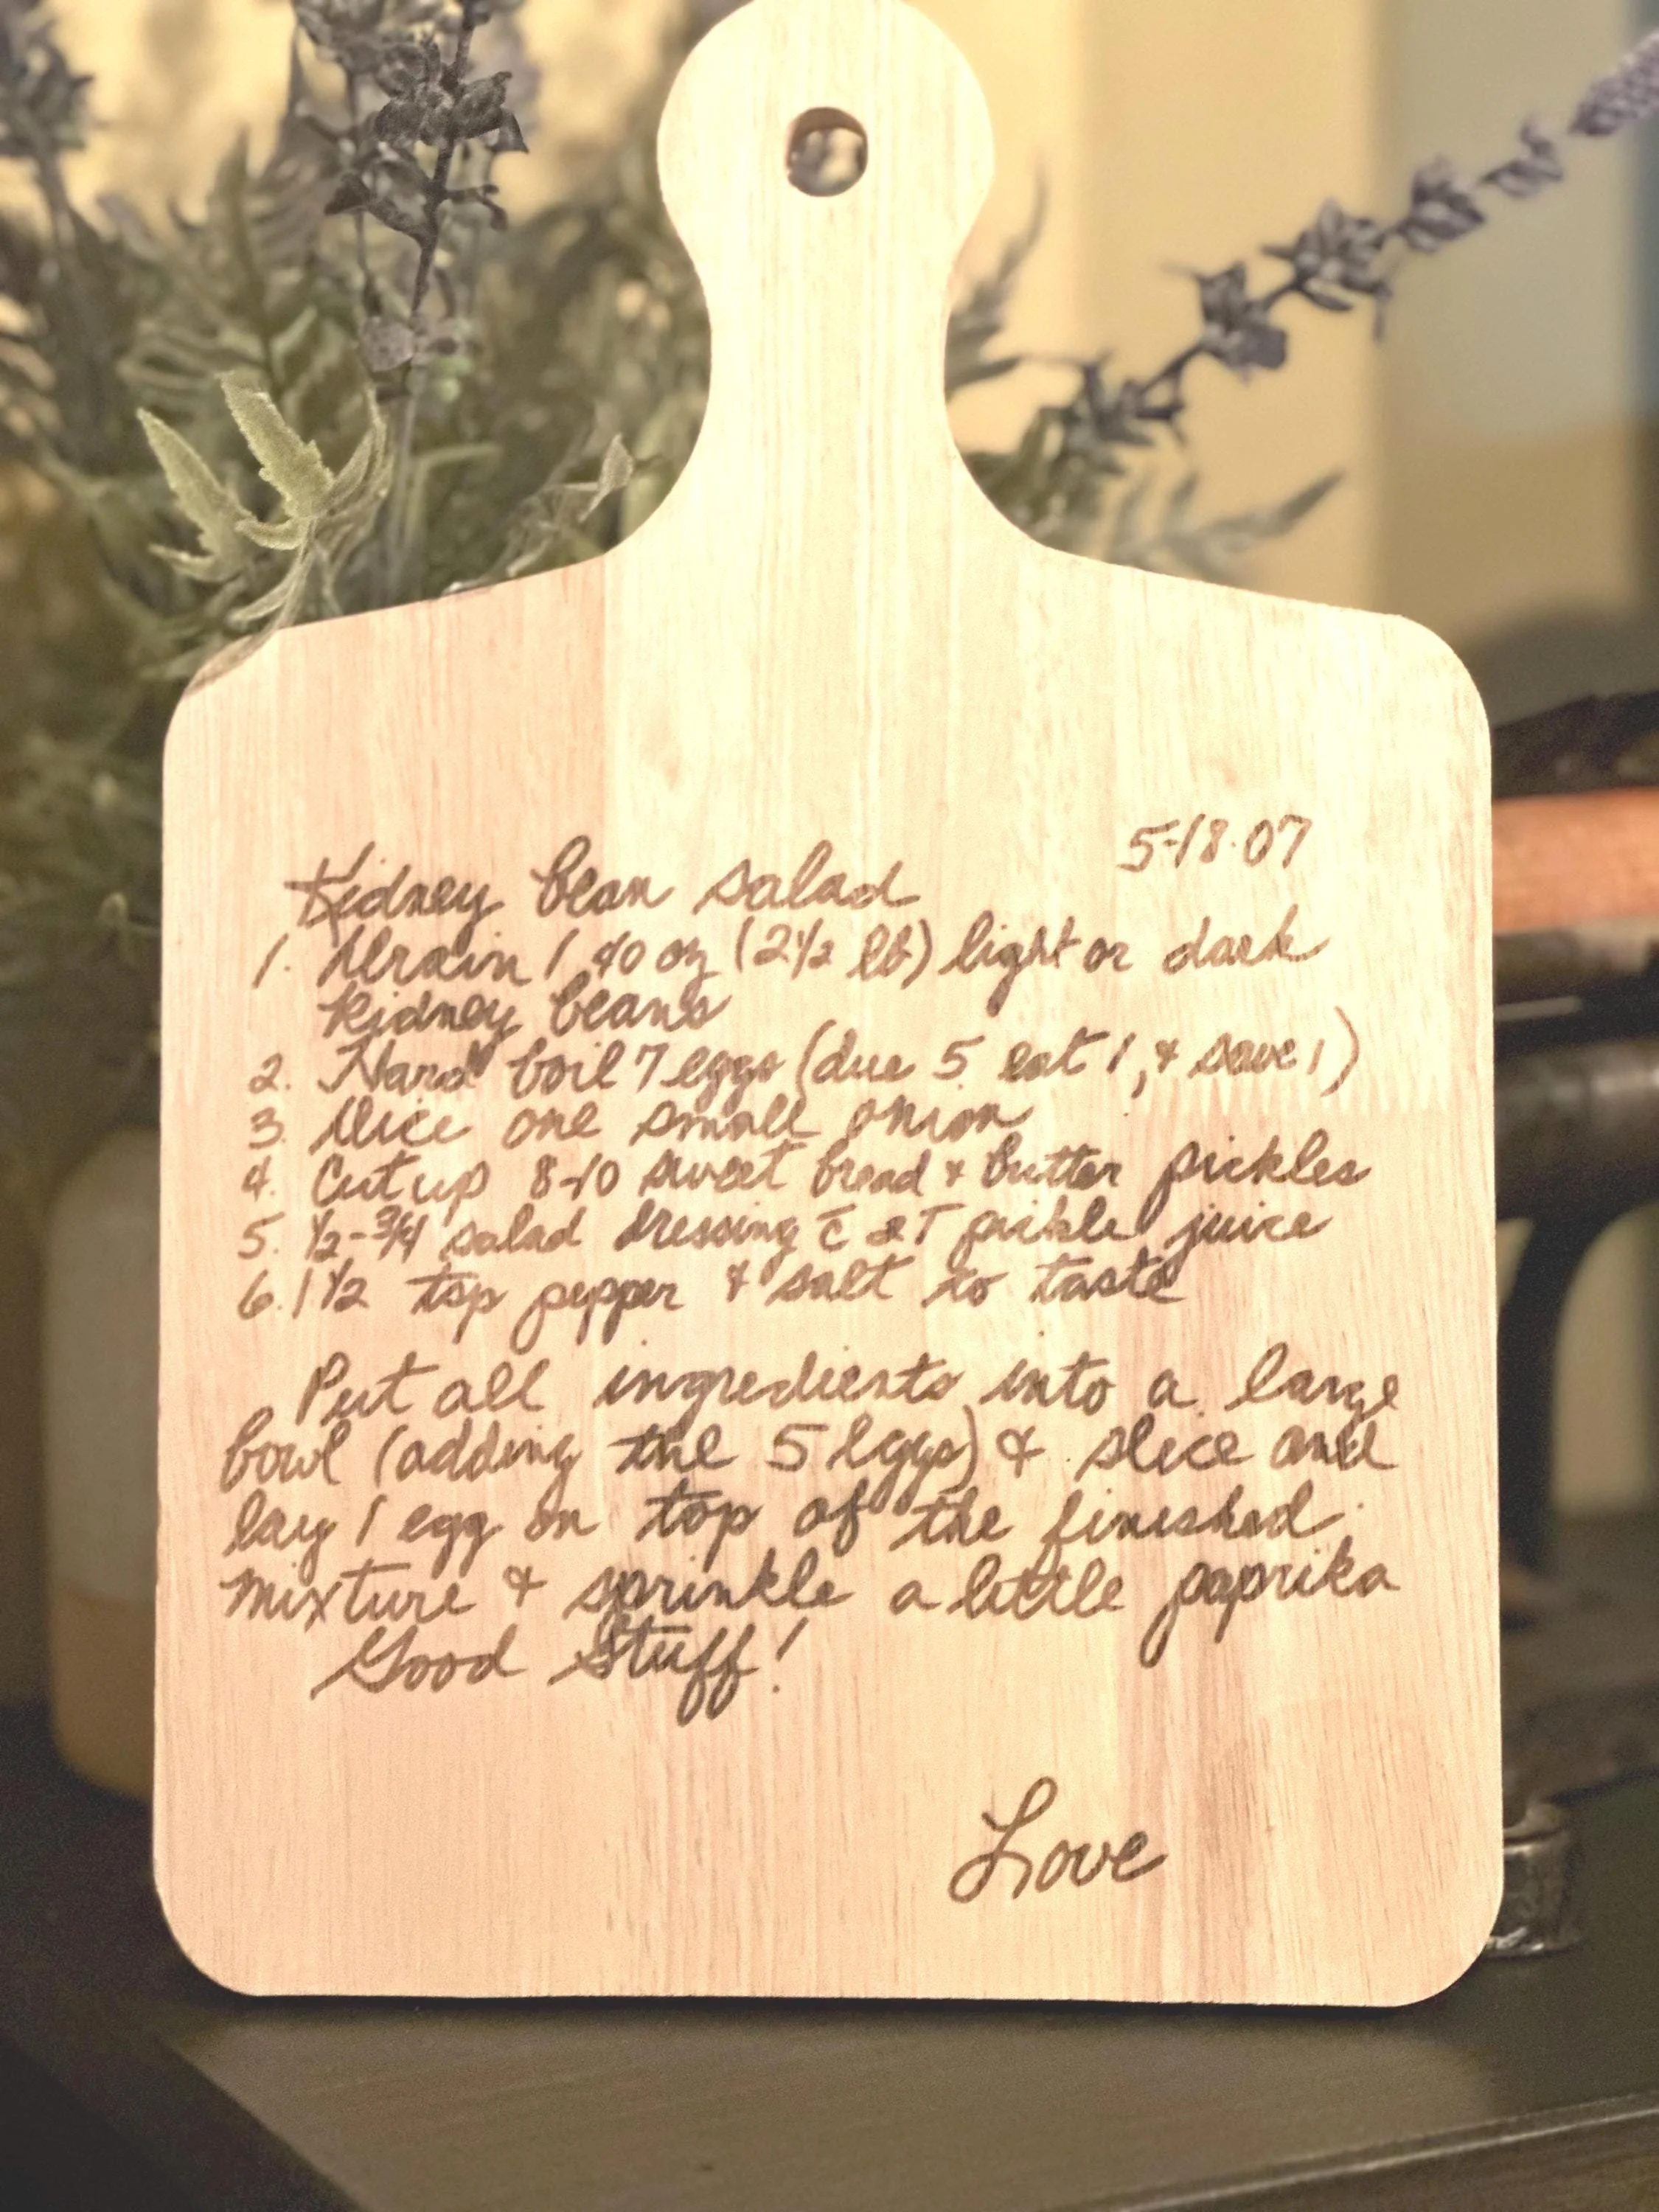 5-18-07
Kidney bean salad
1. Drain 1 40 oz (2 1/2 lb) light or dark
Kidney beans
2. Hard boil 7 eggs (due 5 eat 1, & save 1)
3. Dice one small onion
4. Cut up 8-10 sweet bread & butter pickles
5. 1/2-3/4 salad dressing c̄ T pickle juice
6. 1 1/2 tsp pepper & salt to taste
Put all ingredients into a large
bowl (adding the 5 eggs) & slice and
lay 1 egg on top of the finished
mixture & sprinkle a little paprika
Good Stuff!
Love